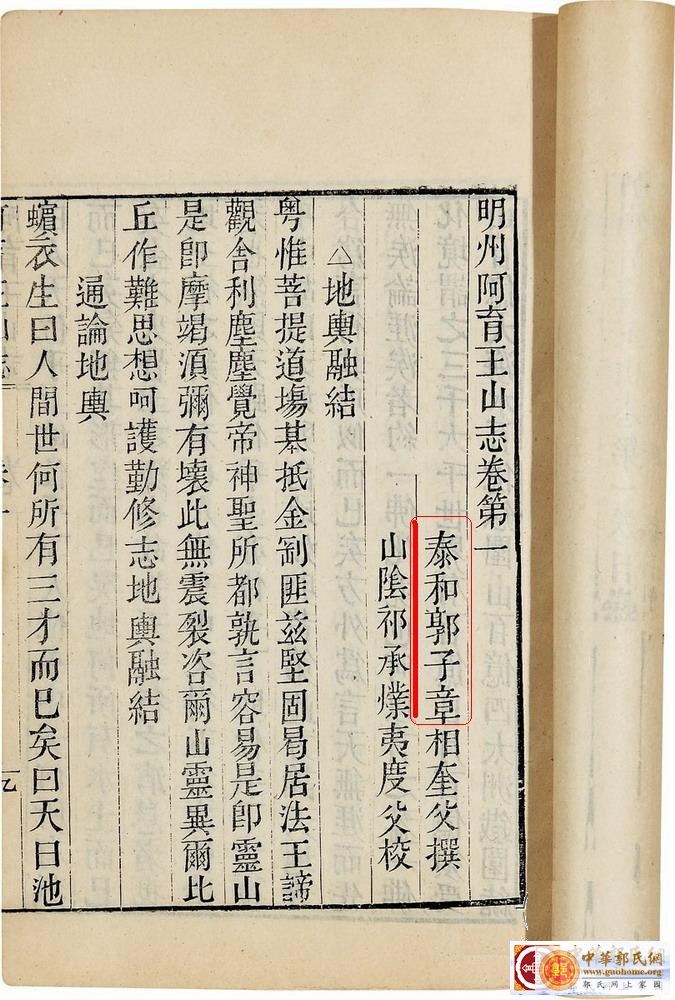 明州阿育王山志卷第一
泰和郭子章相奎父撰
山陰祁承㸁夷度父校
△地輿融結
粵惟菩提道場基抵金剛匪兹堅固曷居法王諦
觀舍利塵塵覺帝神聖所都孰言容易是即靈山
是即摩竭須彌有壞此無震裂咨爾山靈異爾比
丘作難思想呵護勤修志地輿融結
通論地輿
蠙衣生曰人間世何所有三才而已矣曰天曰池
中華郭氏網
www.guohome.org
郭氏网上家园